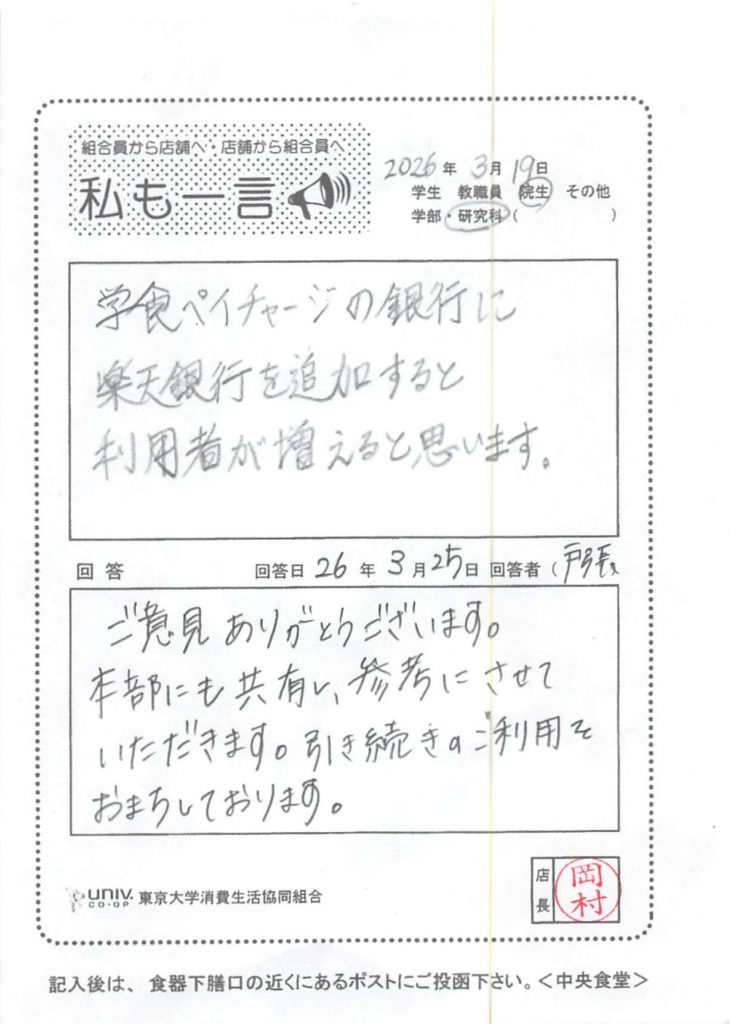 組合員から店舗へ・店舗から組合員へ
私も一言
2026年 3月19日
学生 教職員 院生 その他
学部・研究科( )
学食ペイチャージの銀行に
楽天銀行を追加すると
利用者が増えると思います。
回答 回答日 26年 3月25日 回答者(戸張
ご意見ありがとうございます。
本部にも共有し、参考にさせて
いただきます。引き続きのご利用を
おまちしております。
UNIV. CO-OP 東京大学消費生活協同組合
店長 岡村
記入後は、食器下膳口の近くにあるポストにご投函下さい。<中央食堂>